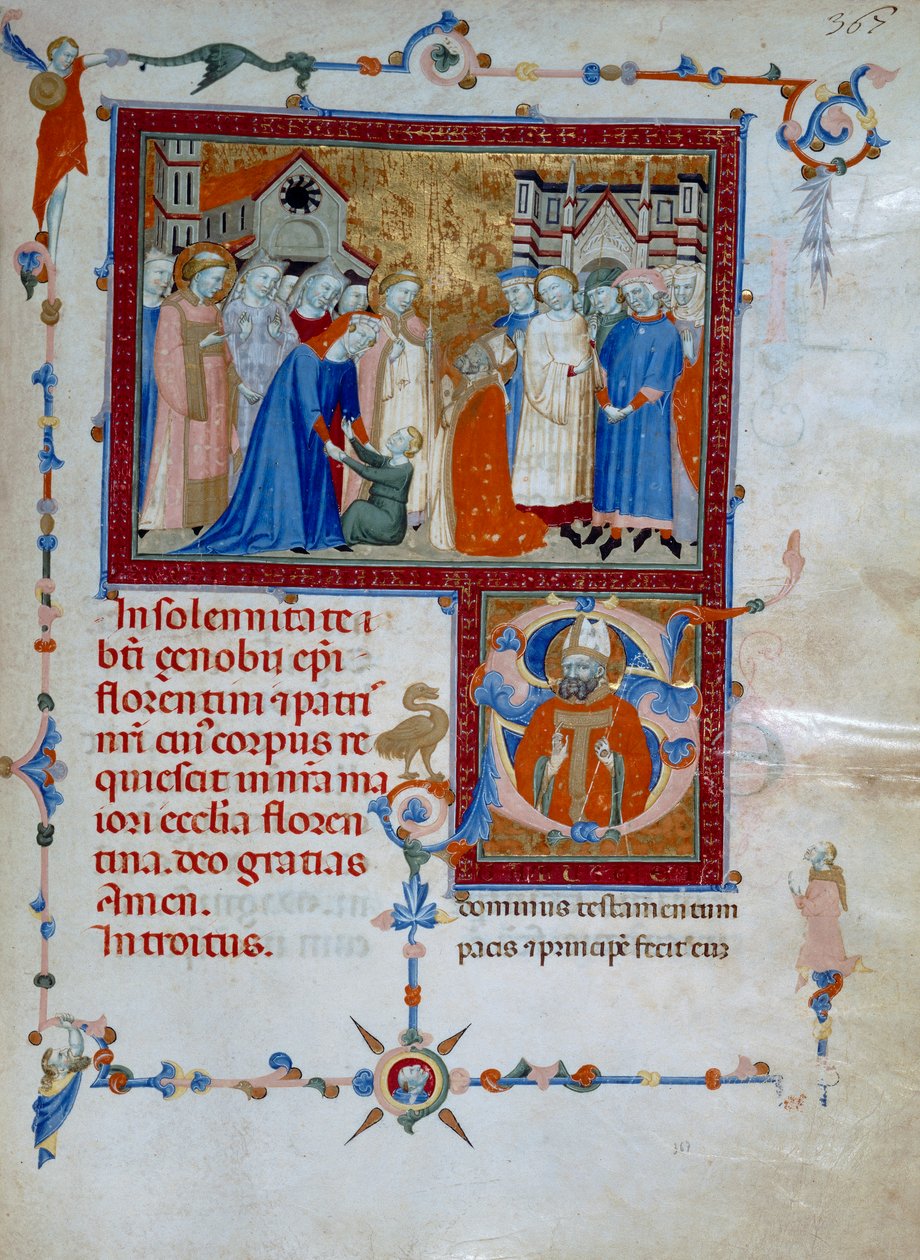 367
In solennitate i
bti genobii epi
florentini ⁊ patri
nri cuꝰ corpus re
quiescit in nra ma
iori ecclia floren
tina. deo gratias
Amen.
Introitus.
S
dominus testamentum
pacis ⁊ principē fecit eum
367